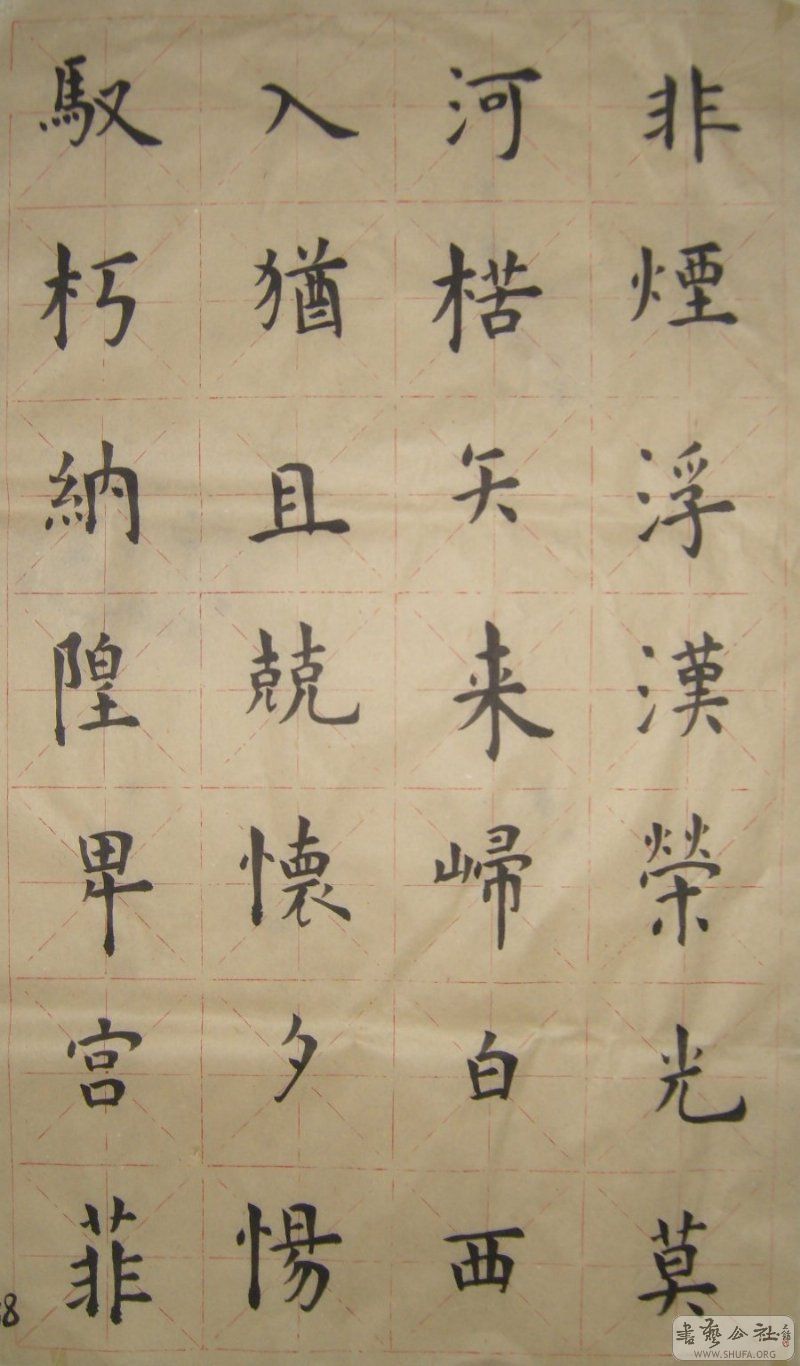 非煙浮漢榮光莫
河楛矢来㱕白西
入猶且兢懷夕惕
馭朽納隍卑宫菲
8
書藝公社
WWW.SHUFA.ORG